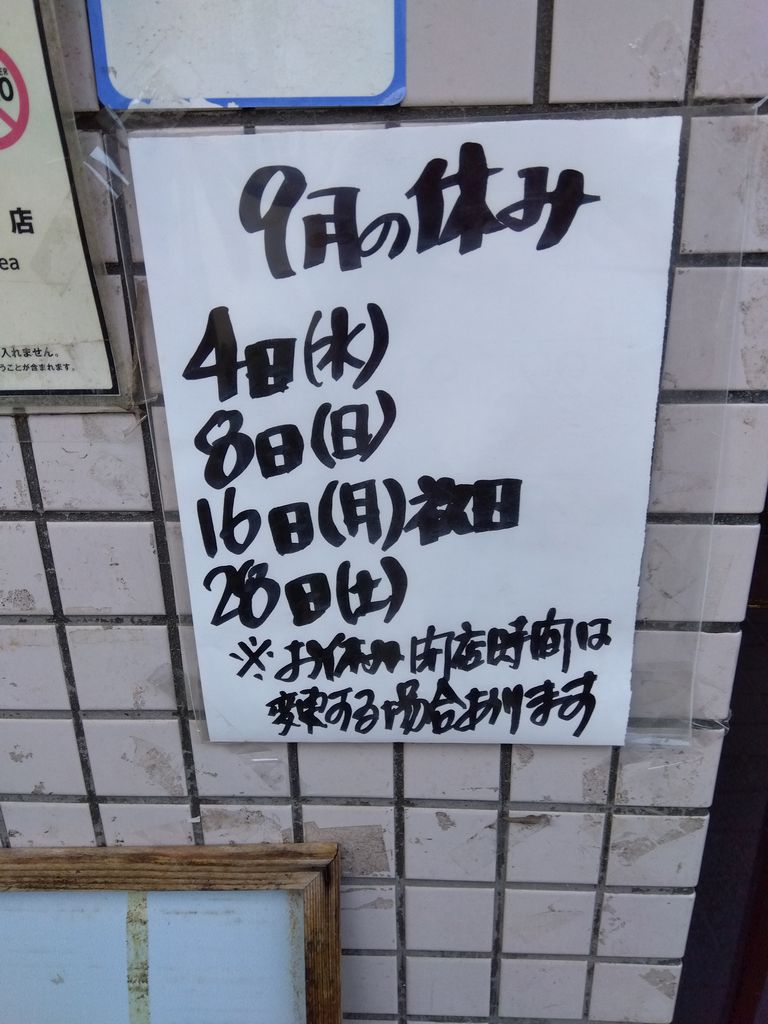 店
ea
入れません。
うことが含まれます。
9月の休み
4日(水)
8日(日)
16日(月)祝日
28日(土)
※お休み 閉店時間は
変更する場合あります